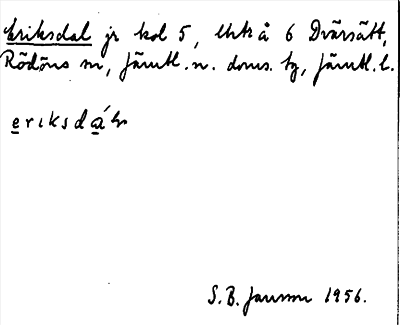 Eriksdal jr kol 5, Utkå 6 Dvärsätt,
Rödöns sn, Jämtl. n. doms. tg, Jämtl. l.
eriksdá
S.B. Jansson 1956.